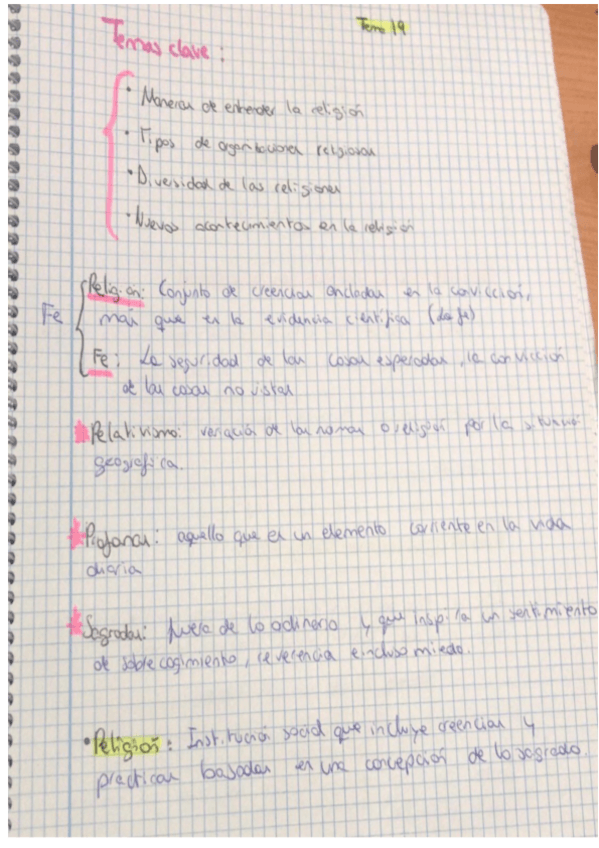 Tema 19
Temas clave:
• Maneras de entender la religión
• Tipos de organizaciones religiosas
• Diversidad de las religiones
• Nuevos acontecimientos en la religión
Religión: Conjunto de creencias ancladas en la convicción,
Fe más que en la evidencia científica (da fe)
Fe: La seguridad de las cosas esperadas, la convicción
de las cosas no vistas
Relativismo: variación de las normas o religión por la situación
geográfica.
Profanas: aquello que es un elemento corriente en la vida
diaria
Sagradas: fuera de lo ordinario y que inspira un sentimiento
de sobrecogimiento, reverencia e incluso miedo.
• Religión: Institución social que incluye creencias y
practicas basadas en una concepción de lo sagrado.